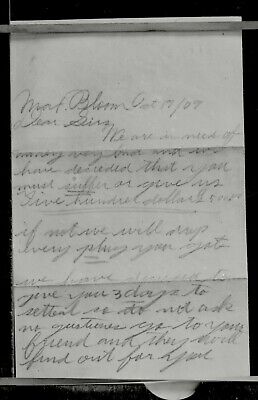 Mr. P. Bloom Oct 17/09
Dear Sirs
We are in need of
money very bad and we
have decieded that you
must suffer or give us
Five hundred dollars 500.00
if not we will drop
every plug you got
we have
give you 3 days to
settel so do not ask
no questiones go to your
ffriend and they will
find out for you